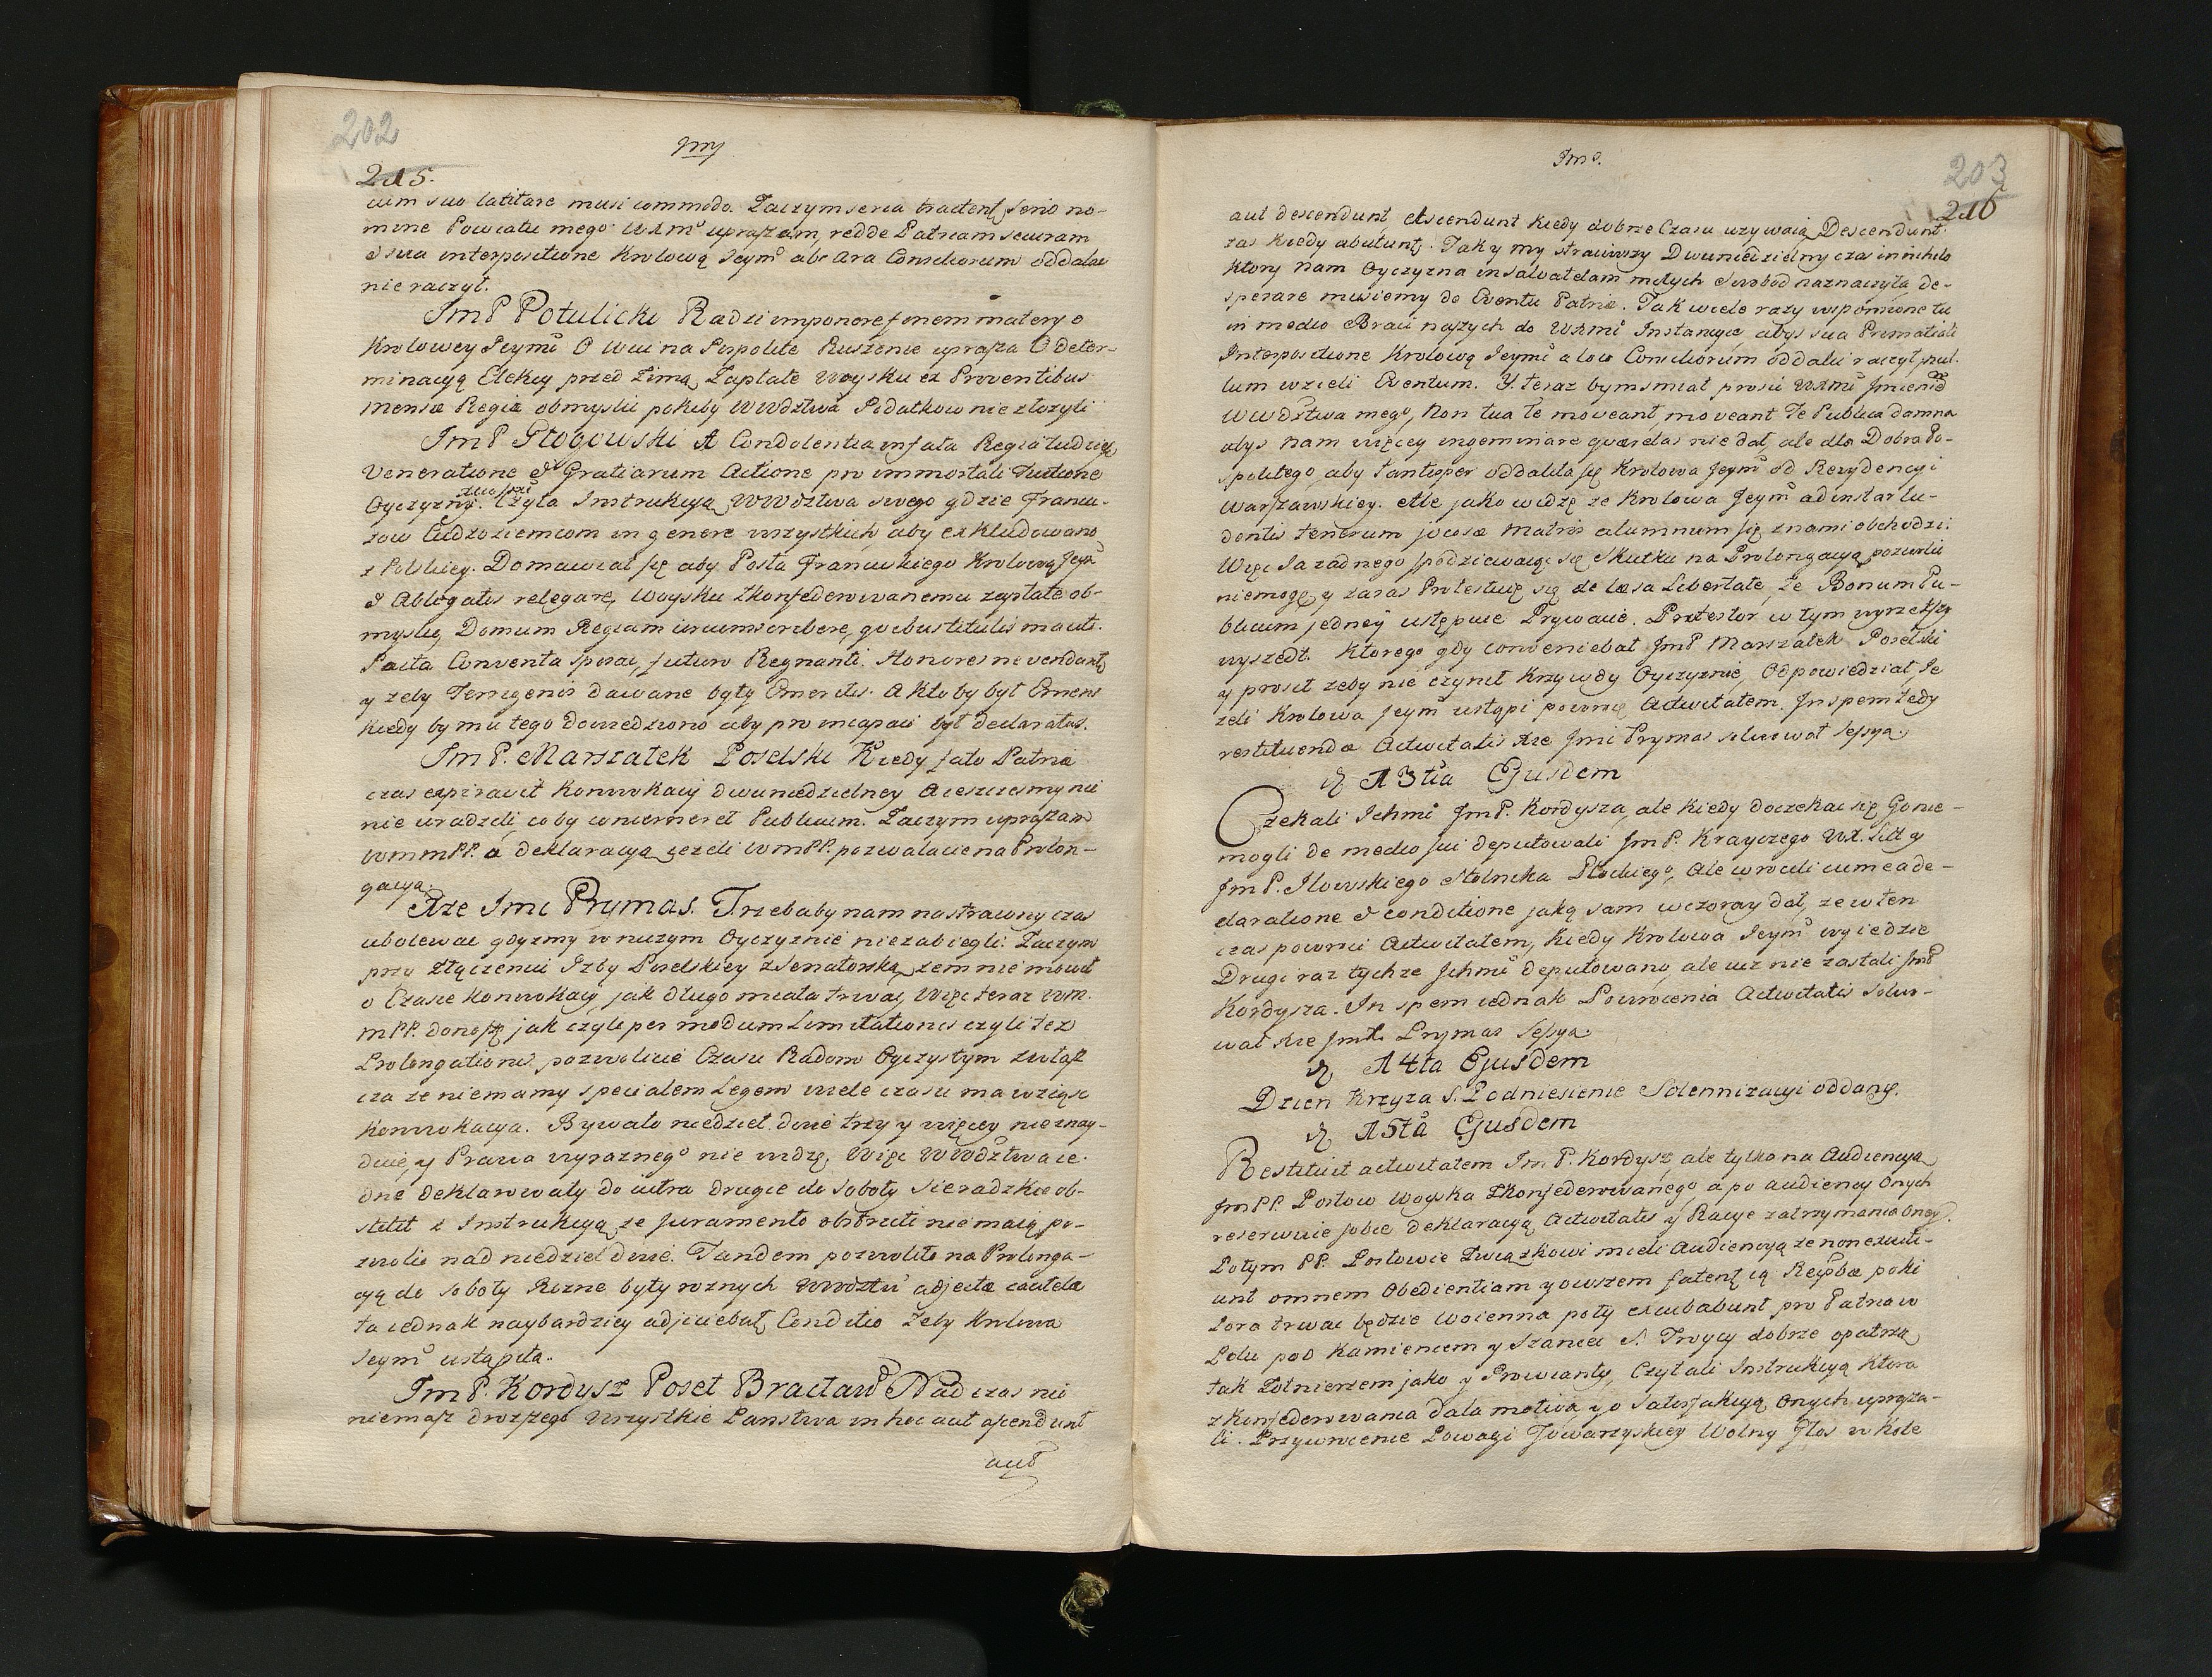 202
215.
cum suo latitare musi commodo. Zaczym seria tractent serio no-
mine Powiatu mego WXMć upraszam, redde Patriam securam
& sua interpositione Krolową Jeymć abs Ara Consiliorum oddalac
nie raczył.
ImP Potulicki Radzi imponere finem materyi o
Krolowey Jeymć O Wici na Pospolite Ruszenie uprasza O deter-
minacyą Elekcyi przed Zimą, Zapłatę Woysku ex Proventibus
mensæ Regiæ obmyslic pokiby WWdztwa Podatkow nie złożyli
ImP Głogowski A Condolentia in fata Regia tudziesz
Veneratione & Gratiarum Actione pro immortali
Oyczyzny. Czyta Instrukcyą WWdztwa swego gdzie Francu-
zow Cudzoziemcom in genere wszystkich, aby exkludowano
z Polskiey. Domawiał się aby Posła Francuskiego Krolową Jeyм
& Ablegatis relegare, Woysku Zkonfederowanemu zapłatę ob-
myslic, Domum Regiam circumscribere,
Pacta Conventa futuro Regnanti. Honores ne vendant,
y zeby Terrigenis dawane były Emeritis. A kto by był Emens
kiedy by mu tego dowiedziono aby pro incapaci był declaratus.
ImP. Marszałek Poselski Kiedy fato Patriæ
czas expiravit Konwokacyi dwuniedzielney A ieszczesmy nic
nie uradzili, co by concerneret Publicum. Zaczym upraszam
WmmPP. o deklaracyą iezeli WmPP. pozwalacie na Prolon-
gacyą.
Xze Jmć Prymas. Trzebaby nam na strawny czas
ubolewac gdyzmy w niczym Oyczyznie nie zabiegli. Zaczym
przy złączeniu Izby Poselskiey z Senatorską, zem nie mowił
o Czasie Konwokacyi, jak długo miała trwac, Więc teraz WM.
mPP. donoszę jak czyli per modum Limitationis czyli tez
Prolongationis, pozwolicie Czasu Radom Oyczystym zwłasz
cza ze niemamy specialem Legem wiele czasu ma wziąsc
Konwokacya. Bywało niedziel dwie trzy y więcey nie znay-
duię, y Prawa wyraznego nie widzę, Więc WWdztwa ie-
dne deklarowały do iutra drugie do Soboty Sieradzkie ob-
stitit z Instrukcyą, ze Juramento obstricti nie maią po-
zwolic nad niedziel dwie. Tandem pozwolili na Prolonga-
cyą do Soboty Rozne były roznych WWdztw adjectæ cautelæ
ta iednak naybardziey adjiciebat, Conditio Zeby Krolowa
Jeymć ustąpiła.
ImP. Kordysz Poseł Bracław Nad czas nic
niemasz drozszego Wszystkie Panstwa in hoc aut ascendunt
aut
Jmo.
203
216
aut descendunt, Ascendunt kiedy dobrze Czasu uzywaią, Descendunt
zas kiedy abutunt. Tak y my strawiwszy Dwuniedzielny czas in nihilo
ktory nam Oyczyzna in salvatelam miłych Swobod naznaczyła, de-
sperare musiemy de Eventu Patriæ. Tak wiele razy wspomnione tu
in medio Braci naszych do WXMć Instancye, abys sua Primatiali
Interpositione Krolową Jeymć a loco Consiliorum oddalic raczył, nul-
lum wzieli Eventum. Y teraz bym smiał prosic WXMć Imieniẽ
WWdztwa mego, Non tua te moveant, moveant Te Publica damna
abys nam więcey ingeminare quærelas nie dał, ale dla Dobra Po-
spolitego, aby tantisper oddaliła się Krolowa Jeymć od Rezydencyi
Warszawskiey. Ale jako widzę ze Krolowa Jeymć ad instar lu-
dentis tenerum jocosæ Matris alumnum się znami obchodzi.
Więc Ja zadnego spodziewaiąc się Skutku na Prolongacyą pozwolic
niemogę, y zaras Protestuię się de læsa Libertate, Ze Bonum Pu-
blicum jedney ustępuie Prywacie. Protestor w tym wyrzekszy
wyszedł. Ktorego gdy conveniebat ImP Marszałek Poselski
y prosił zeby nie czynił Krzywdy Oyczyznie, Odpowiedział, Je
zeli Krolowa Jeymć ustąpi powrocę Activitatem. In spem tedy
restituendæ Activitatis Xze Jmć Prymas solwował Sessyą.
D 13tia Ejusdem
Czekali Ichmć ImP. Kordysza, ale kiedy doczekac się Go nie-
mogli de medio sui deputowali ImP. Krayczego WX. Litt y
ImP. Iłowskiego Stolnika Płockiego, Ale wrocili cum ea de-
claratione & conditione jaką sam wczoray dał, ze w ten
czas powroci Activitatem, kiedy Krolowa Jeymć wyiedzie
Drugi raz tychze Ichmć deputowano, ale iuz nie zastali ImP
Kordysza. In spem iednak Powrocenia Activitatis solwo-
wał Xze Jmć Prymas Sessyą.
D 14ta Ejusdem
Dzien Krzyza S. Podniesienie Solennizacyi oddany.
D 15ta Ejusdem
Restituit activitatem ImP. Kordysz, ale tylko na Audiencyą
ImPP. Posłow Woyska Zkonfederowanego, a po audiencyi Onych
reserwuie sobie deklaracyą Activitatis y Racye zatrzymania Oney.
Potym PP. Posłowie Związkowi mieli Audiencyą ze non exuti-
unt omnem Obedientiam y owszem fatentą Reipbæ poki
Pora trwac będzie Woienna poty excubabunt pro Patria w
Polu pod Kamiencem y Szaniec S. Troycy dobrze opatrzą
tak Zołnierzem jako y Prowianty, Czytali Instrukcyą Ktora
zkonfederowania dała motiva, y o Satisfakcyą Onych uprasza-
li. Przywrocenie Powagi Towarzyskiey Wolny Głos w Kole